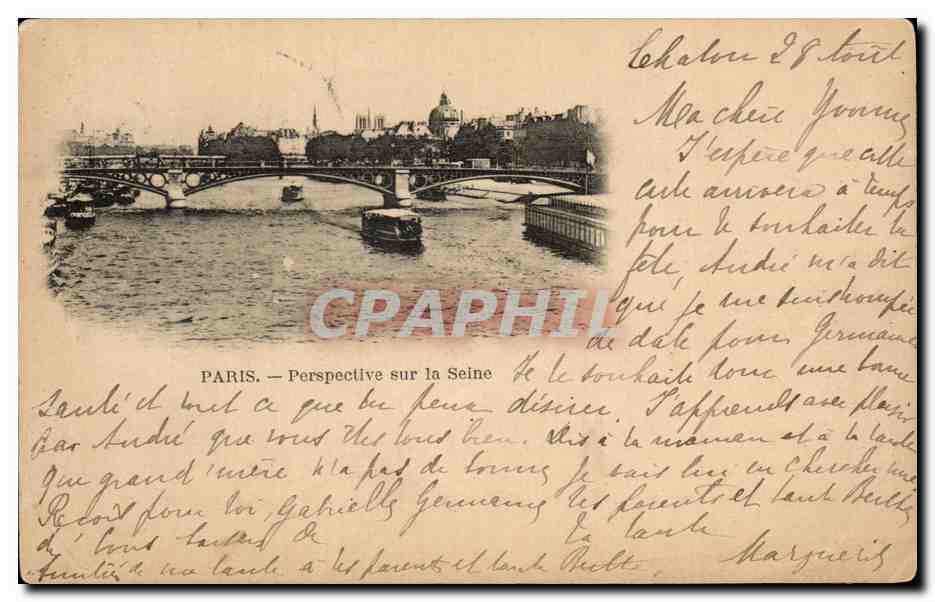 Chalon 28 Août
Ma chère Yvonne
J'espère que cette
carte arrivera à temps
pour te souhaiter ta
fête, André m'a dit
que je me suis trompée
de date pour Germaine
CPAPHIL
PARIS. — Perspective sur la Seine
Je te souhaite donc une bonne
Santé et tout ce que tu peux désirer. J'apprends avec plaisir
par André que vous êtes tous bien. Dis à ta maman et à ta tante
que grand'mère n'a pas de bonne je vais lui en chercher une
Reçois pour toi, Gabrielle Germaine tes parents et tante Berthe
de bons baisers de ta tante
Marguerite
amitiés de ma tante à tes parents et tante Berthe.